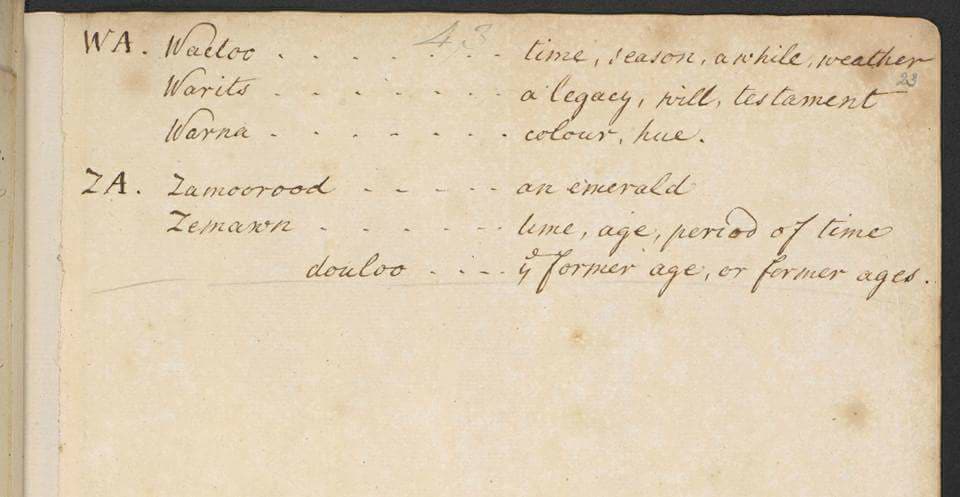 43
WA. Wactoo . . . . . . . time, season, a while, weather
23
Warits . . . . . . . a legacy, will, testament
Warna . . . . . . . colour, hue.
ZA. Zamoorood . . . . . an emerald
Zemawn . . . . . . time, age, period of time
douloo . . . . ye former age, or former ages.